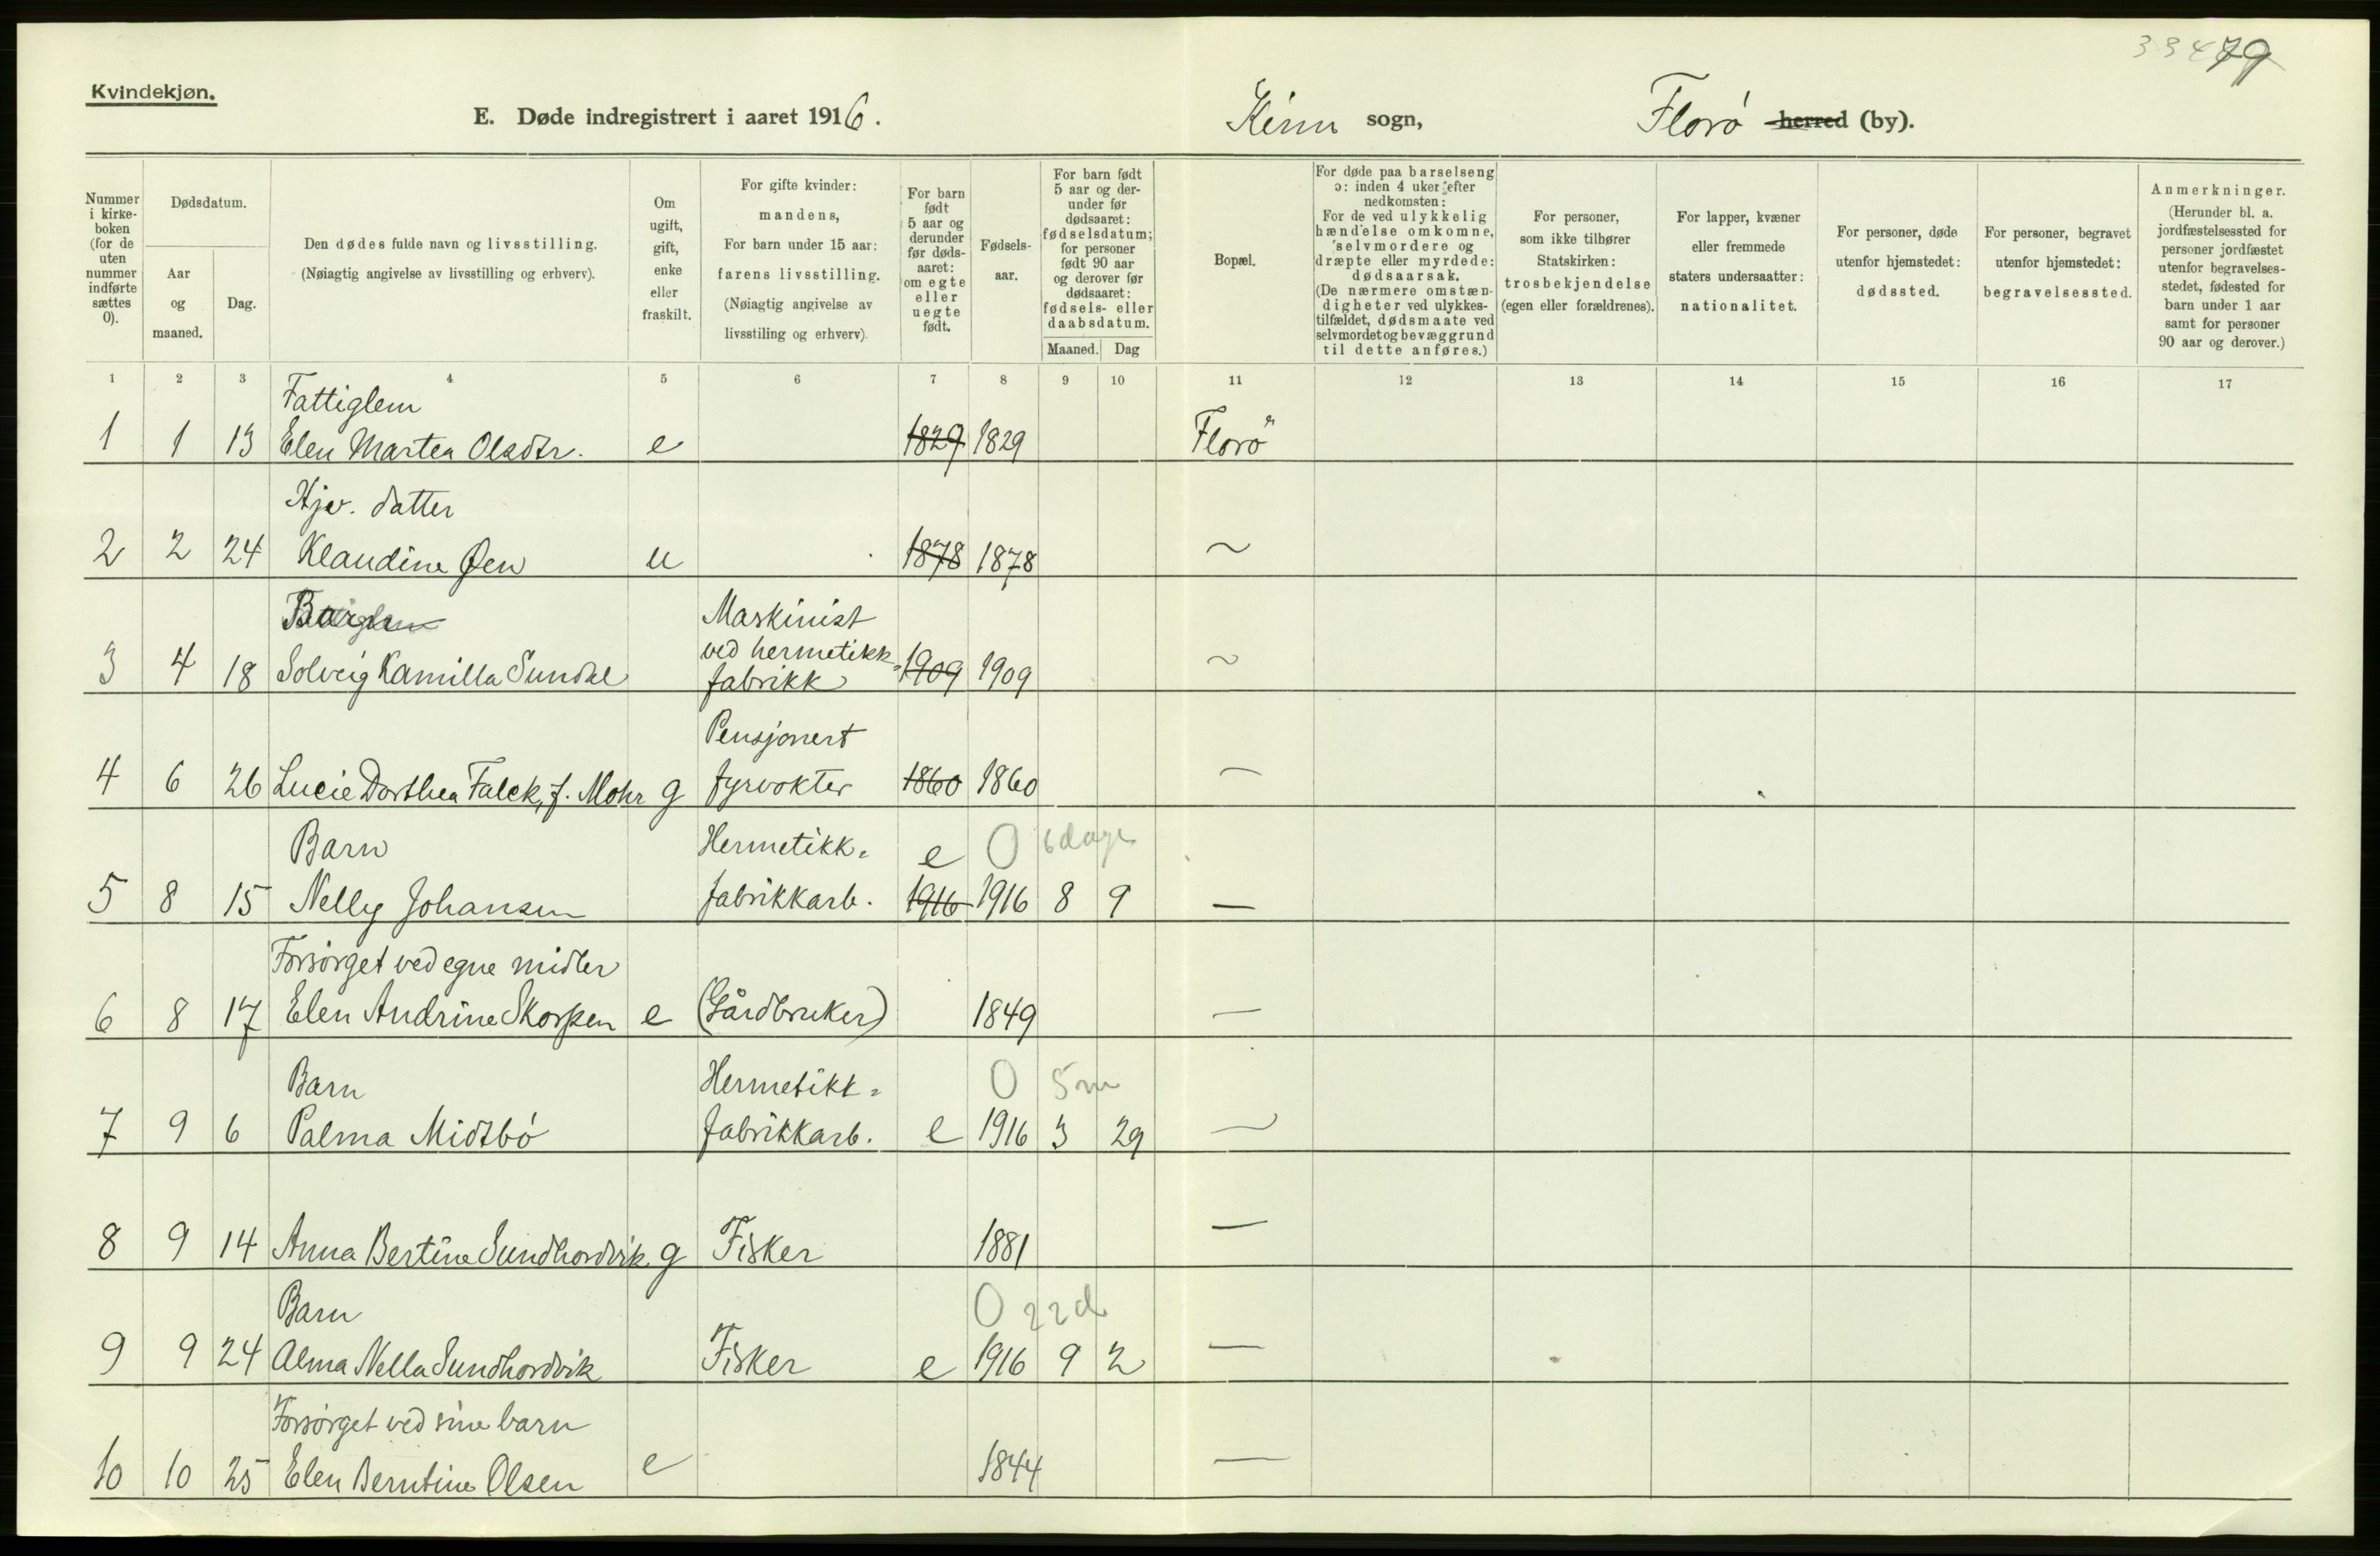 33479
Kvindekjøn.
E. Døde indregistrert i aaret 1916. Kinn sogn, Florø herred (by).
Nummer i kirke-boken (for de uten nummer indførte sættes 0).
Dødsdatum.
Aar og maaned.
Dag.
Den dødes fulde navn og livsstilling.
(Nøiagtig angivelse av livsstilling og erhverv).
Om ugift, gift, enke eller fraskilt.
For gifte kvinder: mandens,
For barn under 15 aar: farens livsstilling.
(Nøiagtig angivelse av livsstiling og erhverv).
For barn født 5 aar og derunder før døds-aaret: om egte eller uegte født.
Fødsels-aar.
For barn født 5 aar og der-under før dødsaaret: fødselsdatum; for personer født 90 aar og derover før dødsaaret: fødsels- eller daabsdatum.
Maaned. Dag
Bopæl.
For døde paa barselseng ɔ: inden 4 uker efter nedkomsten:
For de ved ulykkelig hændelse omkomne, selvmordere og dræpte eller myrdede: dødsaarsak.
(De nærmere omstæn-digheter ved ulykkes-tilfældet, dødsmaate ved selvmordet og bevæggrund til dette anføres.)
For personer, som ikke tilhører Statskirken: trosbekjendelse (egen eller forældrenes).
For lapper, kvæner eller fremmede staters undersaatter: nationalitet.
For personer, døde utenfor hjemstedet: dødssted.
For personer, begravet utenfor hjemstedet: begravelsessted.
Anmerkninger.
(Herunder bl. a. jordfæstelsessted for personer jordfæstet utenfor begravelses-stedet, fødested for barn under 1 aar samt for personer 90 aar og derover.)
1 2 3 4 5 6 7 8 9 10 11 12 13 14 15 16 17
Fattiglem
1 1 13 Elen Martea Olsdtr. e 1829 1829 Florø
Hjv. datter
2 2 24 Klaudine Øen u 1878 1878 ~
Barn Maskinist
ved hermetikk-
3 4 18 Solveig Kamilla Sundal fabrikk 1909 1909 ~
Pensjonert
4 6 26 Lucie Dorthea Falck, f. Mohr g fyrvokter 1860 1860 —
Barn Hermetikk- e 0 6 dage
5 8 15 Nelly Johansen fabrikkarb. 1916 1916 8 9 —
Forsørget ved egne midler
6 8 17 Elen Andrine Skorpen e (Gårdbruker) 1849 —
Barn Hermetikk- 0 5 m
7 9 6 Palma Midtbø fabrikkarb. e 1916 3 29 —
8 9 14 Anna Bertine Sundhordvik g Fisker 1881 —
Barn 0 22 d
9 9 24 Alma Nella Sundhordvik Fisker e 1916 9 2 —
Forsørget ved sine barn
10 10 25 Elen Berntine Olsen e 1844 —